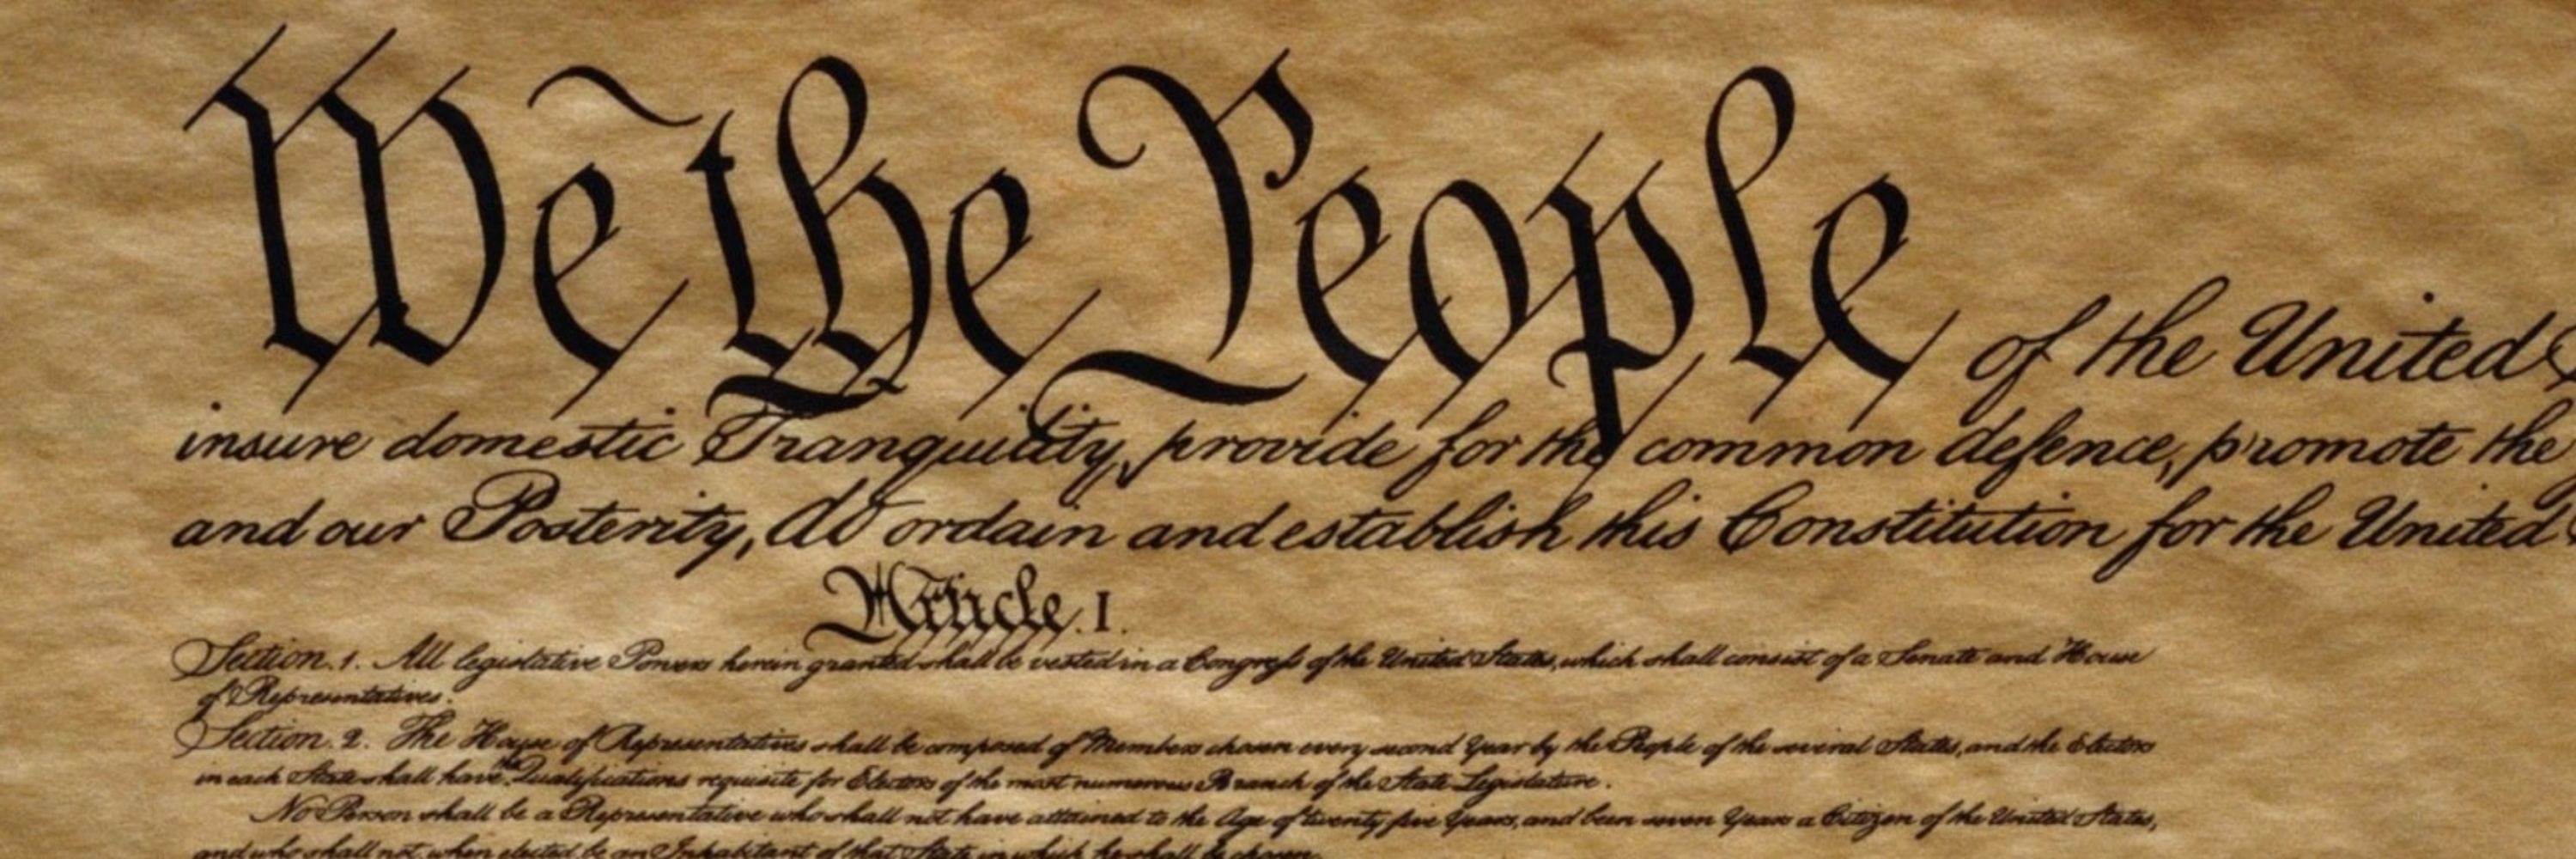 We the People of the United
insure domestic Tranquility, provide for the common defence, promote the
and our Posterity, do ordain and establish this Constitution for the United
Article. I.
Section. 1. All legislative Powers herein granted shall be vested in a Congress of the United States, which shall consist of a Senate and House
of Representatives.
Section. 2. The House of Representatives shall be composed of Members chosen every second Year by the People of the several States, and the Electors
in each State shall have the Qualifications requisite for Electors of the most numerous Branch of the State Legislature.
No Person shall be a Representative who shall not have attained to the Age of twenty five Years, and been seven Years a Citizen of the United States,
and who shall not, when elected, be an Inhabitant of that State in which he shall be chosen.